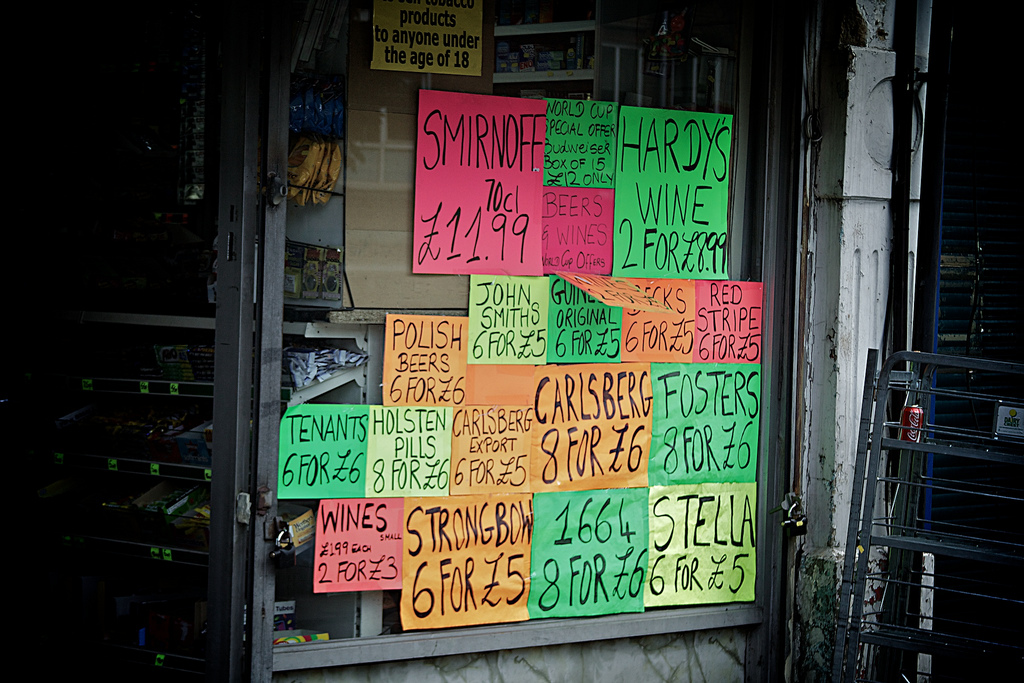 to our tobacco
products
to anyone under
the age of 18
SMIRNOFF
70cl
£11.99
WORLD CUP
SPECIAL OFFER
Budweiser
BOX OF 15
£12 ONLY
BEERS
& WINES
WORLD CUP OFFERS
HARDY'S
WINE
2 FOR £8.99
JOHN
SMITHS
6 FOR £5
ORIGINAL
6 FOR £5
BECKS
6 FOR £5
RED
STRIPE
6 FOR £5
POLISH
BEERS
6 FOR £6
TENANTS
6 FOR £6
HOLSTEN
PILLS
8 FOR £6
CARLSBERG
EXPORT
6 FOR £5
CARLSBERG
8 FOR £6
FOSTERS
8 FOR £6
WINES
SMALL
£1.99 EACH
2 FOR £3
STRONGBOW
6 FOR £5
1664
8 FOR £6
STELLA
6 FOR £5
Tubes
Coca-Cola